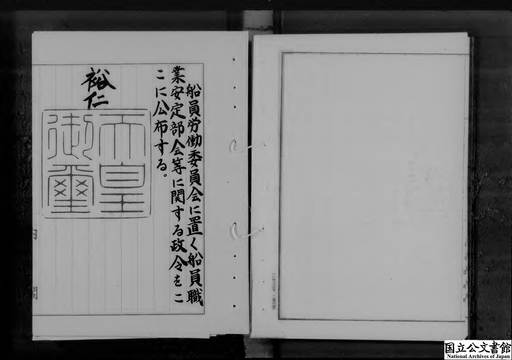 船員労働委員会に置く船員職
業安定部会等に関する政令をこ
こに公布する。
裕仁
天皇
御璽
内閣
国立公文書館
National Archives of Japan